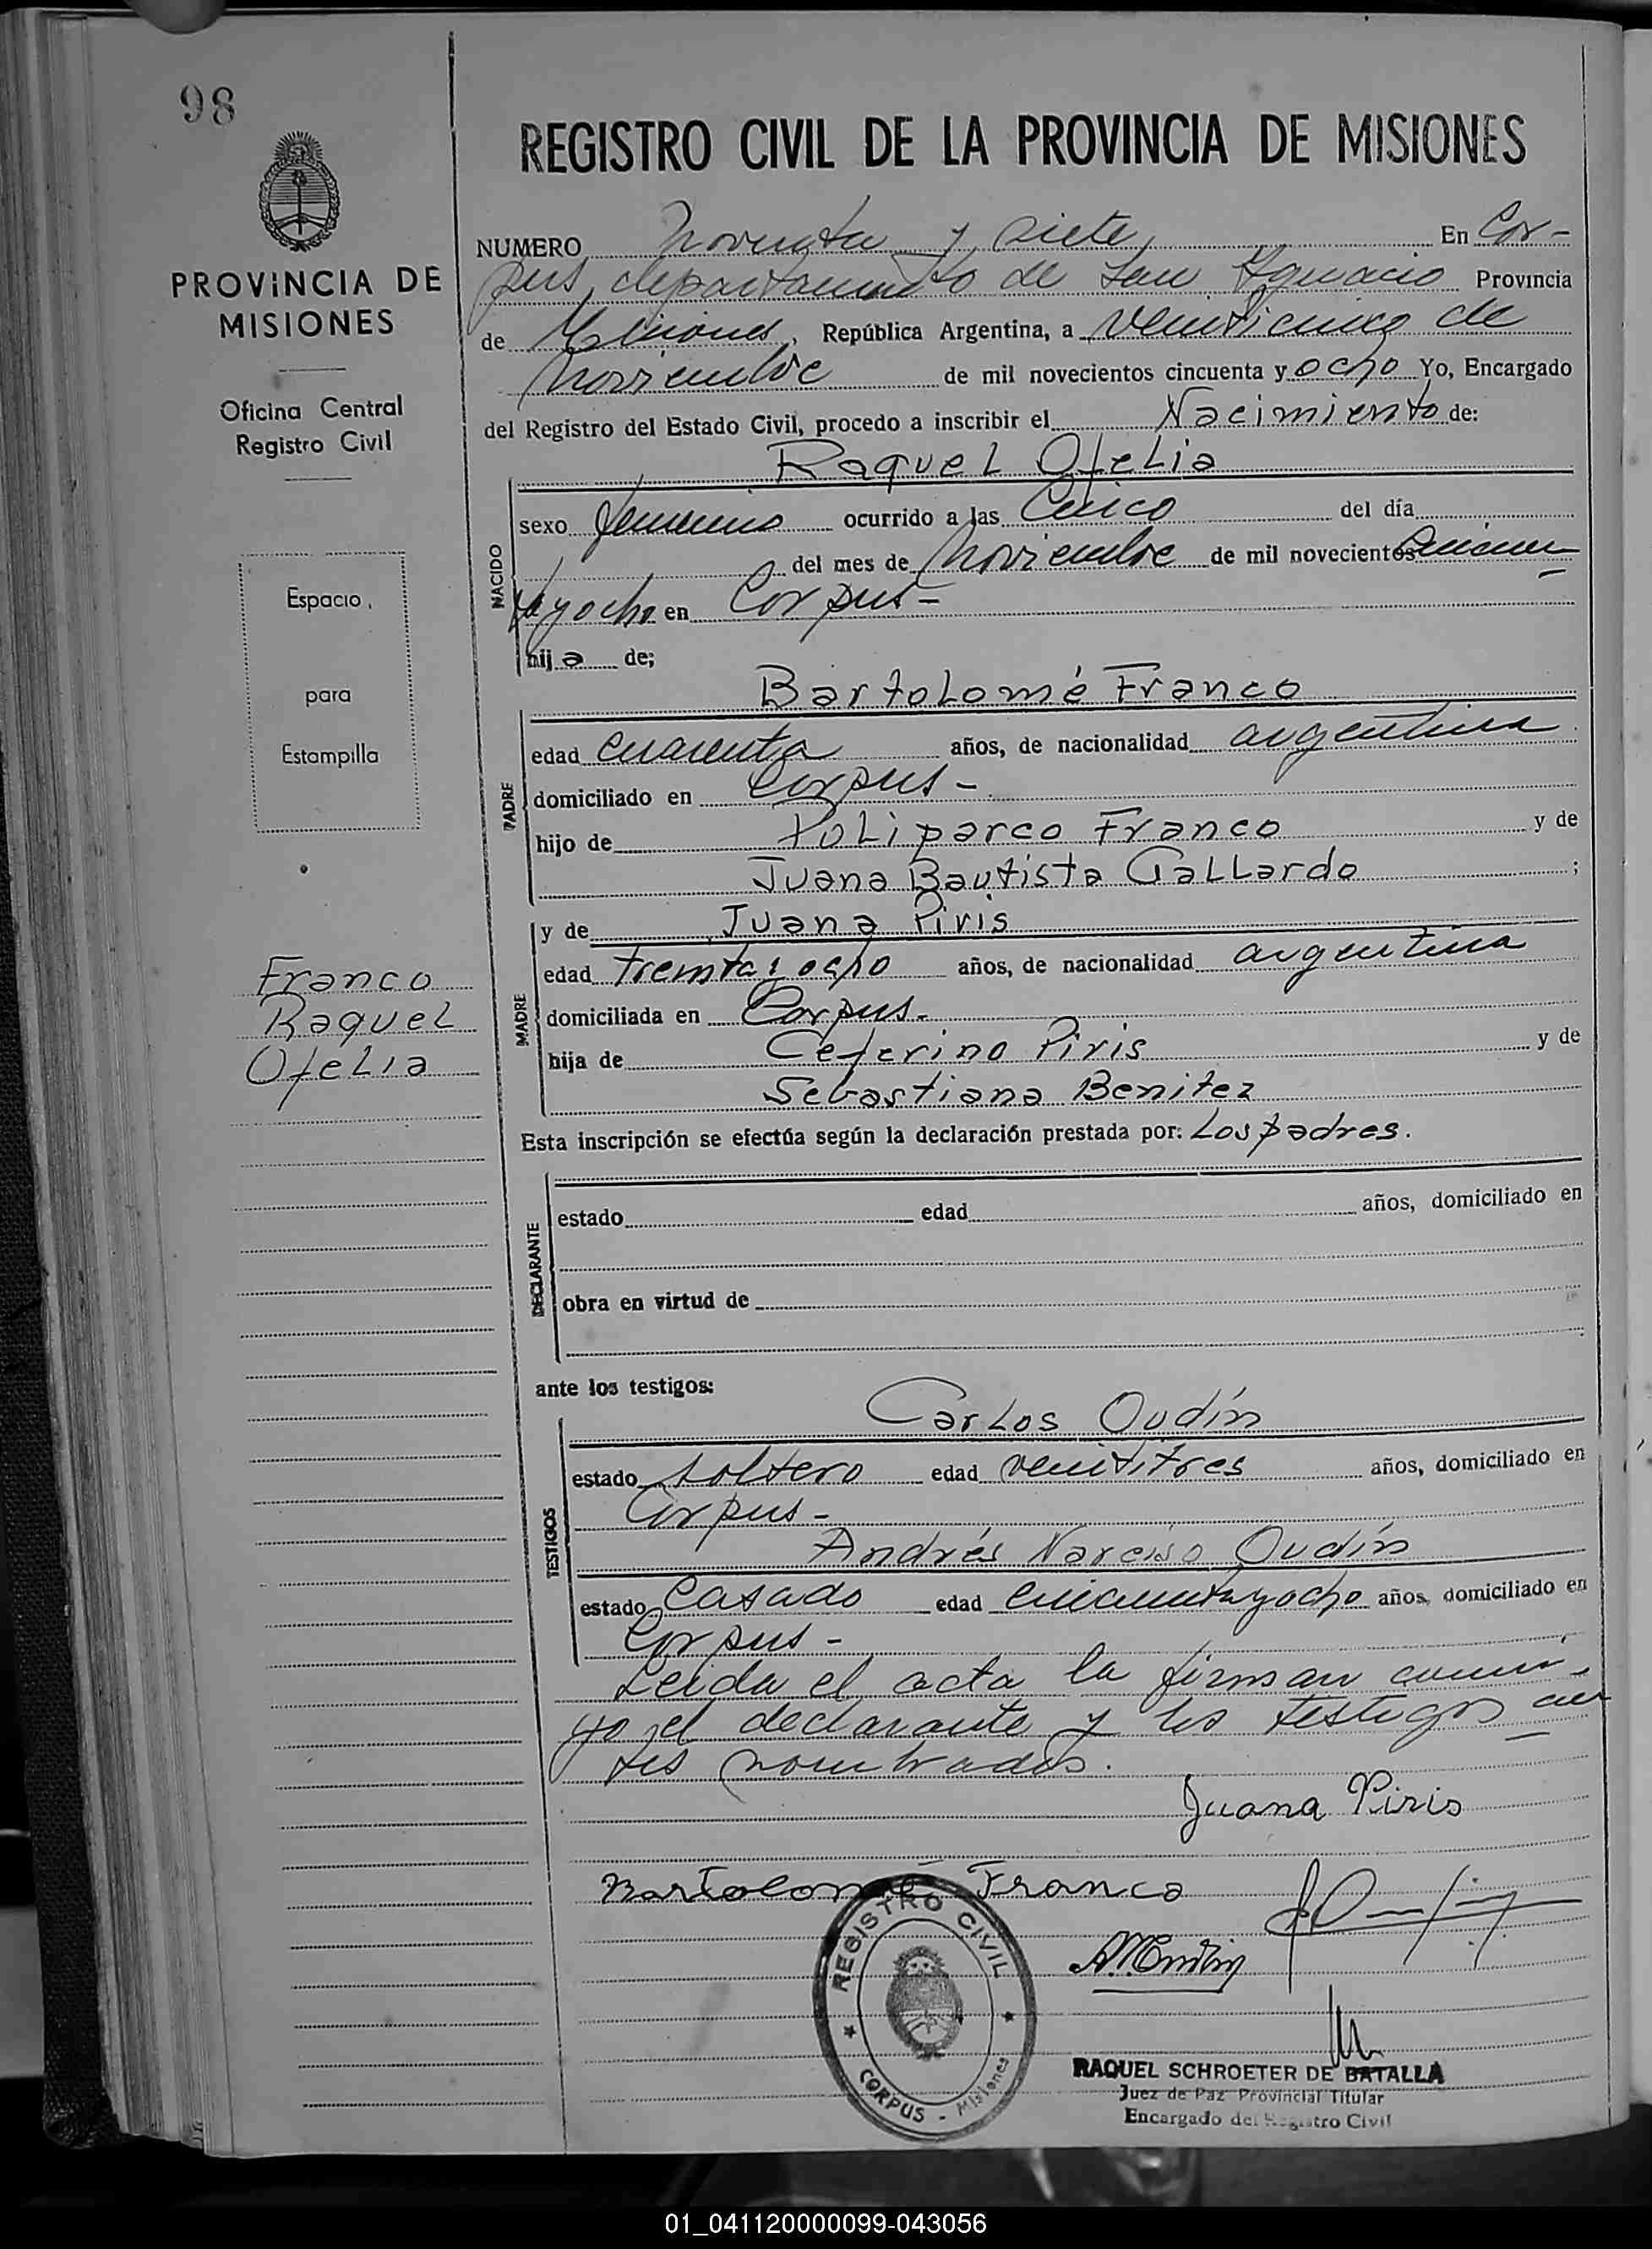 98
REGISTRO CIVIL DE LA PROVINCIA DE MISIONES
PROVINCIA DE
MISIONES
Oficina Central
Registro Civil
Espacio
para
Estampilla
Franco
Raquel
Ofelia
NUMERO Noventa y siete, En Cor-
pus, departamento de San Ignacio Provincia
de Misiones, República Argentina, a veinticinco de
noviembre de mil novecientos cincuenta y ocho Yo, Encargado
del Registro del Estado Civil, procedo a inscribir el Nacimiento de:
Raquel Ofelia
NACIDO
sexo femenino ocurrido a las cinco del día
del mes de noviembre de mil novecientos cincuen
ta y ocho en Corpus-
hija de;
Bartolomé Franco
PADRE
edad cuarenta años, de nacionalidad argentina
domiciliado en Corpus-
hijo de Poliparco Franco y de
Juana Bautista Gallardo ;
y de Juana Piris
MADRE
edad treinta y ocho años, de nacionalidad argentina
domiciliada en Corpus.
hija de Ceferino Piris y de
Sebastiana Benitez
Esta inscripción se efectúa según la declaración prestada por: Los padres.
DECLARANTE
estado edad años, domiciliado en
obra en virtud de
ante los testigos:
Carlos Oudín
TESTIGOS
estado soltero edad veintitres años, domiciliado en
Corpus-
Andrés Narciso Oudín
estado Casado edad cincuenta y ocho años, domiciliado en
Corpus-
Leida el acta la firman conmi-
go el declarante y los testigos an
tes nombrados.
Juana Piris
Bartolomé Franco
REGISTRO CIVIL
CORPUS - Misiones
RAQUEL SCHROETER DE BATALLA
Juez de Paz Provincial Titular
Encargado del Registro Civil
01_041120000099-043056